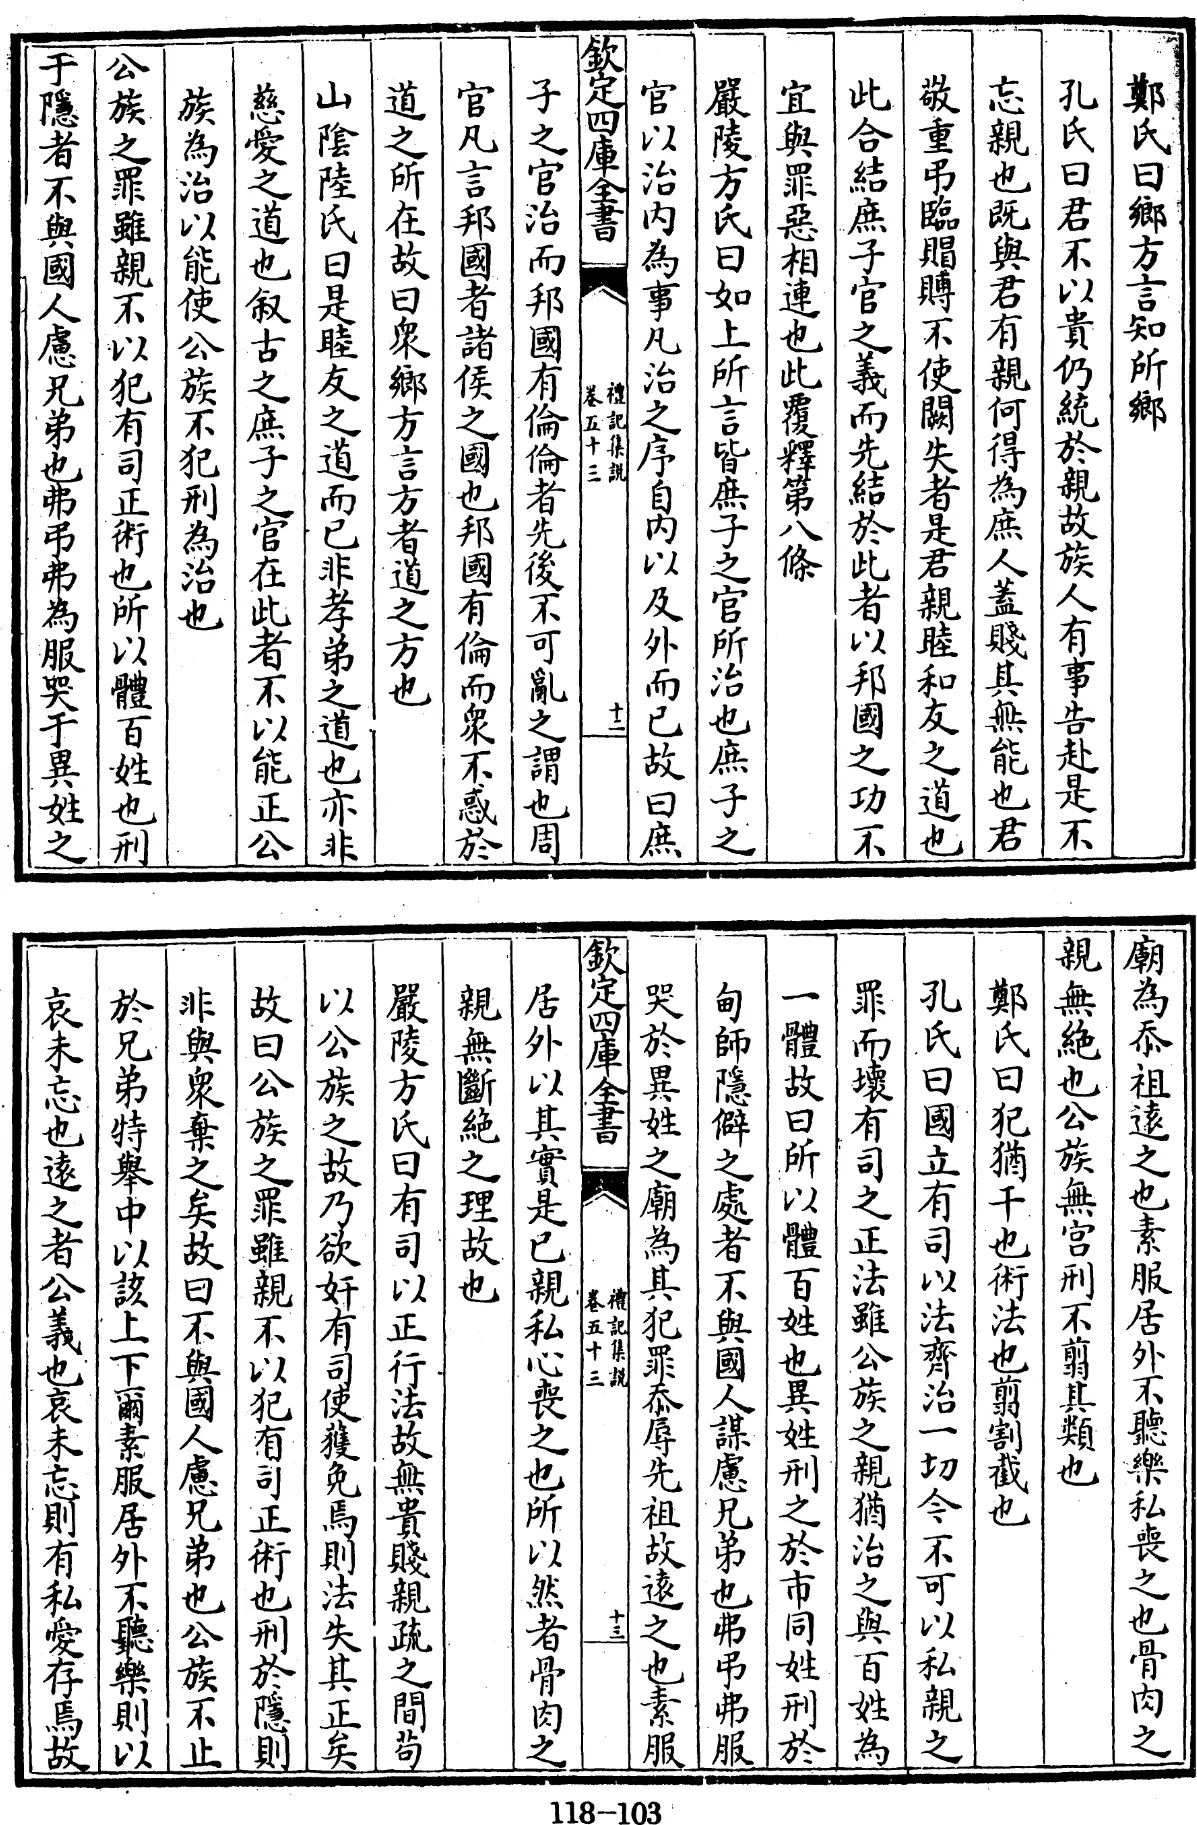 鄭氏曰鄉方言知所鄉
孔氏曰君不以貴仍統於親故族人有事告赴是不
忘親也既與君有親何得為庶人蓋賤其無能也君
敬重弔臨賵賻不使闕失者是君親睦和友之道也
此合結庶子官之義而先結於此者以邦國之功不
宜與罪惡相連也此覆釋第八條
嚴陵方氏曰如上所言皆庶子之官所治也庶子之
官以治内為事凡治之序自内以及外而已故曰庶
欽定四庫全書
禮記集說
卷五十三
十二
子之官治而邦國有倫倫者先後不可亂之謂也周
官凡言邦國者諸侯之國也邦國有倫而衆不惑於
道之所在故曰衆鄉方言方者道之方也
山陰陸氏曰是睦友之道而已非孝弟之道也亦非
慈愛之道也叙古之庶子之官在此者不以能正公
族為治以能使公族不犯刑為治也
公族之罪雖親不以犯有司正術也所以體百姓也刑
于隱者不與國人慮兄弟也弗弔弗為服哭于異姓之
廟為忝祖遠之也素服居外不聽樂私喪之也骨肉之
親無絶也公族無宫刑不翦其類也
鄭氏曰犯猶干也術法也翦割截也
孔氏曰國立有司以法齊治一切令不可以私親之
罪而壞有司之正法雖公族之親猶治之與百姓為
一體故曰所以體百姓也異姓刑之於市同姓刑於
甸師隱僻之處者不與國人謀慮兄弟也弗弔弗服
哭於異姓之廟為其犯罪忝辱先祖故遠之也素服
欽定四庫全書
禮記集說
卷五十三
十三
居外以其實是已親私心喪之也所以然者骨肉之
親無斷絶之理故也
嚴陵方氏曰有司以正行法故無貴賤親疏之間茍
以公族之故乃欲奸有司使獲免焉則法失其正矣
故曰公族之罪雖親不以犯有司正術也刑於隱則
非與衆棄之矣故曰不與國人慮兄弟也公族不止
於兄弟特舉中以該上下爾素服居外不聽樂則以
哀未忘也遠之者公義也哀未忘則有私愛存焉故
118-103